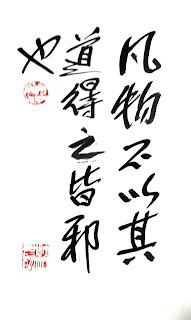 凡物不以其
道得之皆邪
也